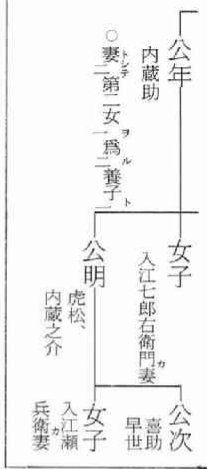 公年
内蔵助
○妻トシテ二第二女ヲ一為ルニ養子ト一
女子
入江七郎右衛門カ妻
公明
虎松、
内蔵之介
公次
喜助
早世
女子
入江瀬
兵衛カ妻